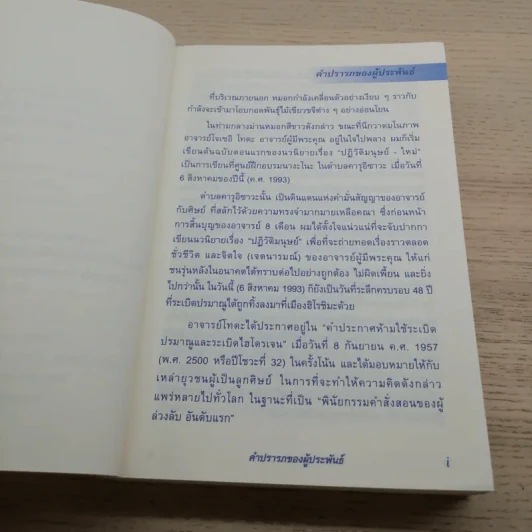 คำปรารภของผู้ประพันธ์
ที่บริเวณภายนอก หมอกกำลังเคลื่อนตัวอย่างเงียบ ๆ ราวกับ
กำลังจะเข้ามาโอบกอดพันธุ์ไม้เขียวขจีต่าง ๆ อย่างอ่อนโยน
ในท่ามกลางม่านหมอกสีขาวดังกล่าว ขณะที่นึกวาดมโนภาพ
อาจารย์โจเซอิ โทดะ อาจารย์ผู้มีพระคุณ อยู่ในใจไปพลาง ผมก็เริ่ม
เขียนต้นฉบับตอนแรกของนวนิยายเรื่อง "ปฏิวัติมนุษย์ - ใหม่"
เป็นการเขียนที่ศูนย์ฝึกอบรมนางะโนะ ในตำบลคารุอิซาวะ เมื่อวันที่
6 สิงหาคมของปีนี้ (ค.ศ. 1993)
ตำบลคารุอิซาวะนั้น เป็นดินแดนแห่งคำมั่นสัญญาของอาจารย์
กับศิษย์ ที่สลักไว้ด้วยความทรงจำมากมายเหลือคณา ซึ่งก่อนหน้า
การสิ้นบุญของอาจารย์ 8 เดือน ผมได้ตั้งใจแน่วแน่ที่จะจับปากกา
เขียนนวนิยายเรื่อง "ปฏิวัติมนุษย์" เพื่อที่จะถ่ายทอดเรื่องราวตลอด
ชั่วชีวิต และจิตใจ (เจตนารมณ์) ของอาจารย์ผู้มีพระคุณ ให้แก่
ชนรุ่นหลังในอนาคตได้ทราบต่อไปอย่างถูกต้อง ไม่ผิดเพี้ยน และยิ่ง
ไปกว่านั้น ในวันนี้ (6 สิงหาคม 1993) ก็ยังเป็นวันที่ระลึกครบรอบ 48 ปี
ที่ระเบิดปรมาณูได้ถูกทิ้งลงมาที่เมืองฮิโรชิมะด้วย
อาจารย์โทดะได้ประกาศอยู่ใน "คำประกาศห้ามใช้ระเบิด
ปรมาณูและระเบิดไฮโดรเจน" เมื่อวันที่ 8 กันยายน ค.ศ. 1957
(พ.ศ. 2500 หรือปีโชวะที่ 32) ในครั้งโน้น และได้มอบหมายให้กับ
เหล่ายุวชนผู้เป็นลูกศิษย์ ในการที่จะทำให้ความคิดดังกล่าว
แพร่หลายไปทั่วโลก ในฐานะที่เป็น "พินัยกรรมคำสั่งสอนของผู้
ล่วงลับ อันดับแรก"
คำปรารภของผู้ประพันธ์ i